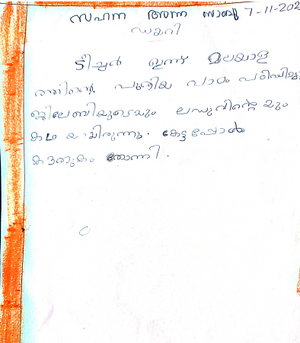 സഹന അന്ന സാബു 7-11-202
ഡയറി
ടീച്ചർ ഇന്ന് മലയാള
ത്തിന്റെ പുതിയ പാഠം പഠിപ്പിച്ചു
ജിലേബിയുടെയും ലഡുവിന്റെയും
കഥയായിരുന്നു. കേട്ടപ്പോൾ
കൗതുകം തോന്നി.